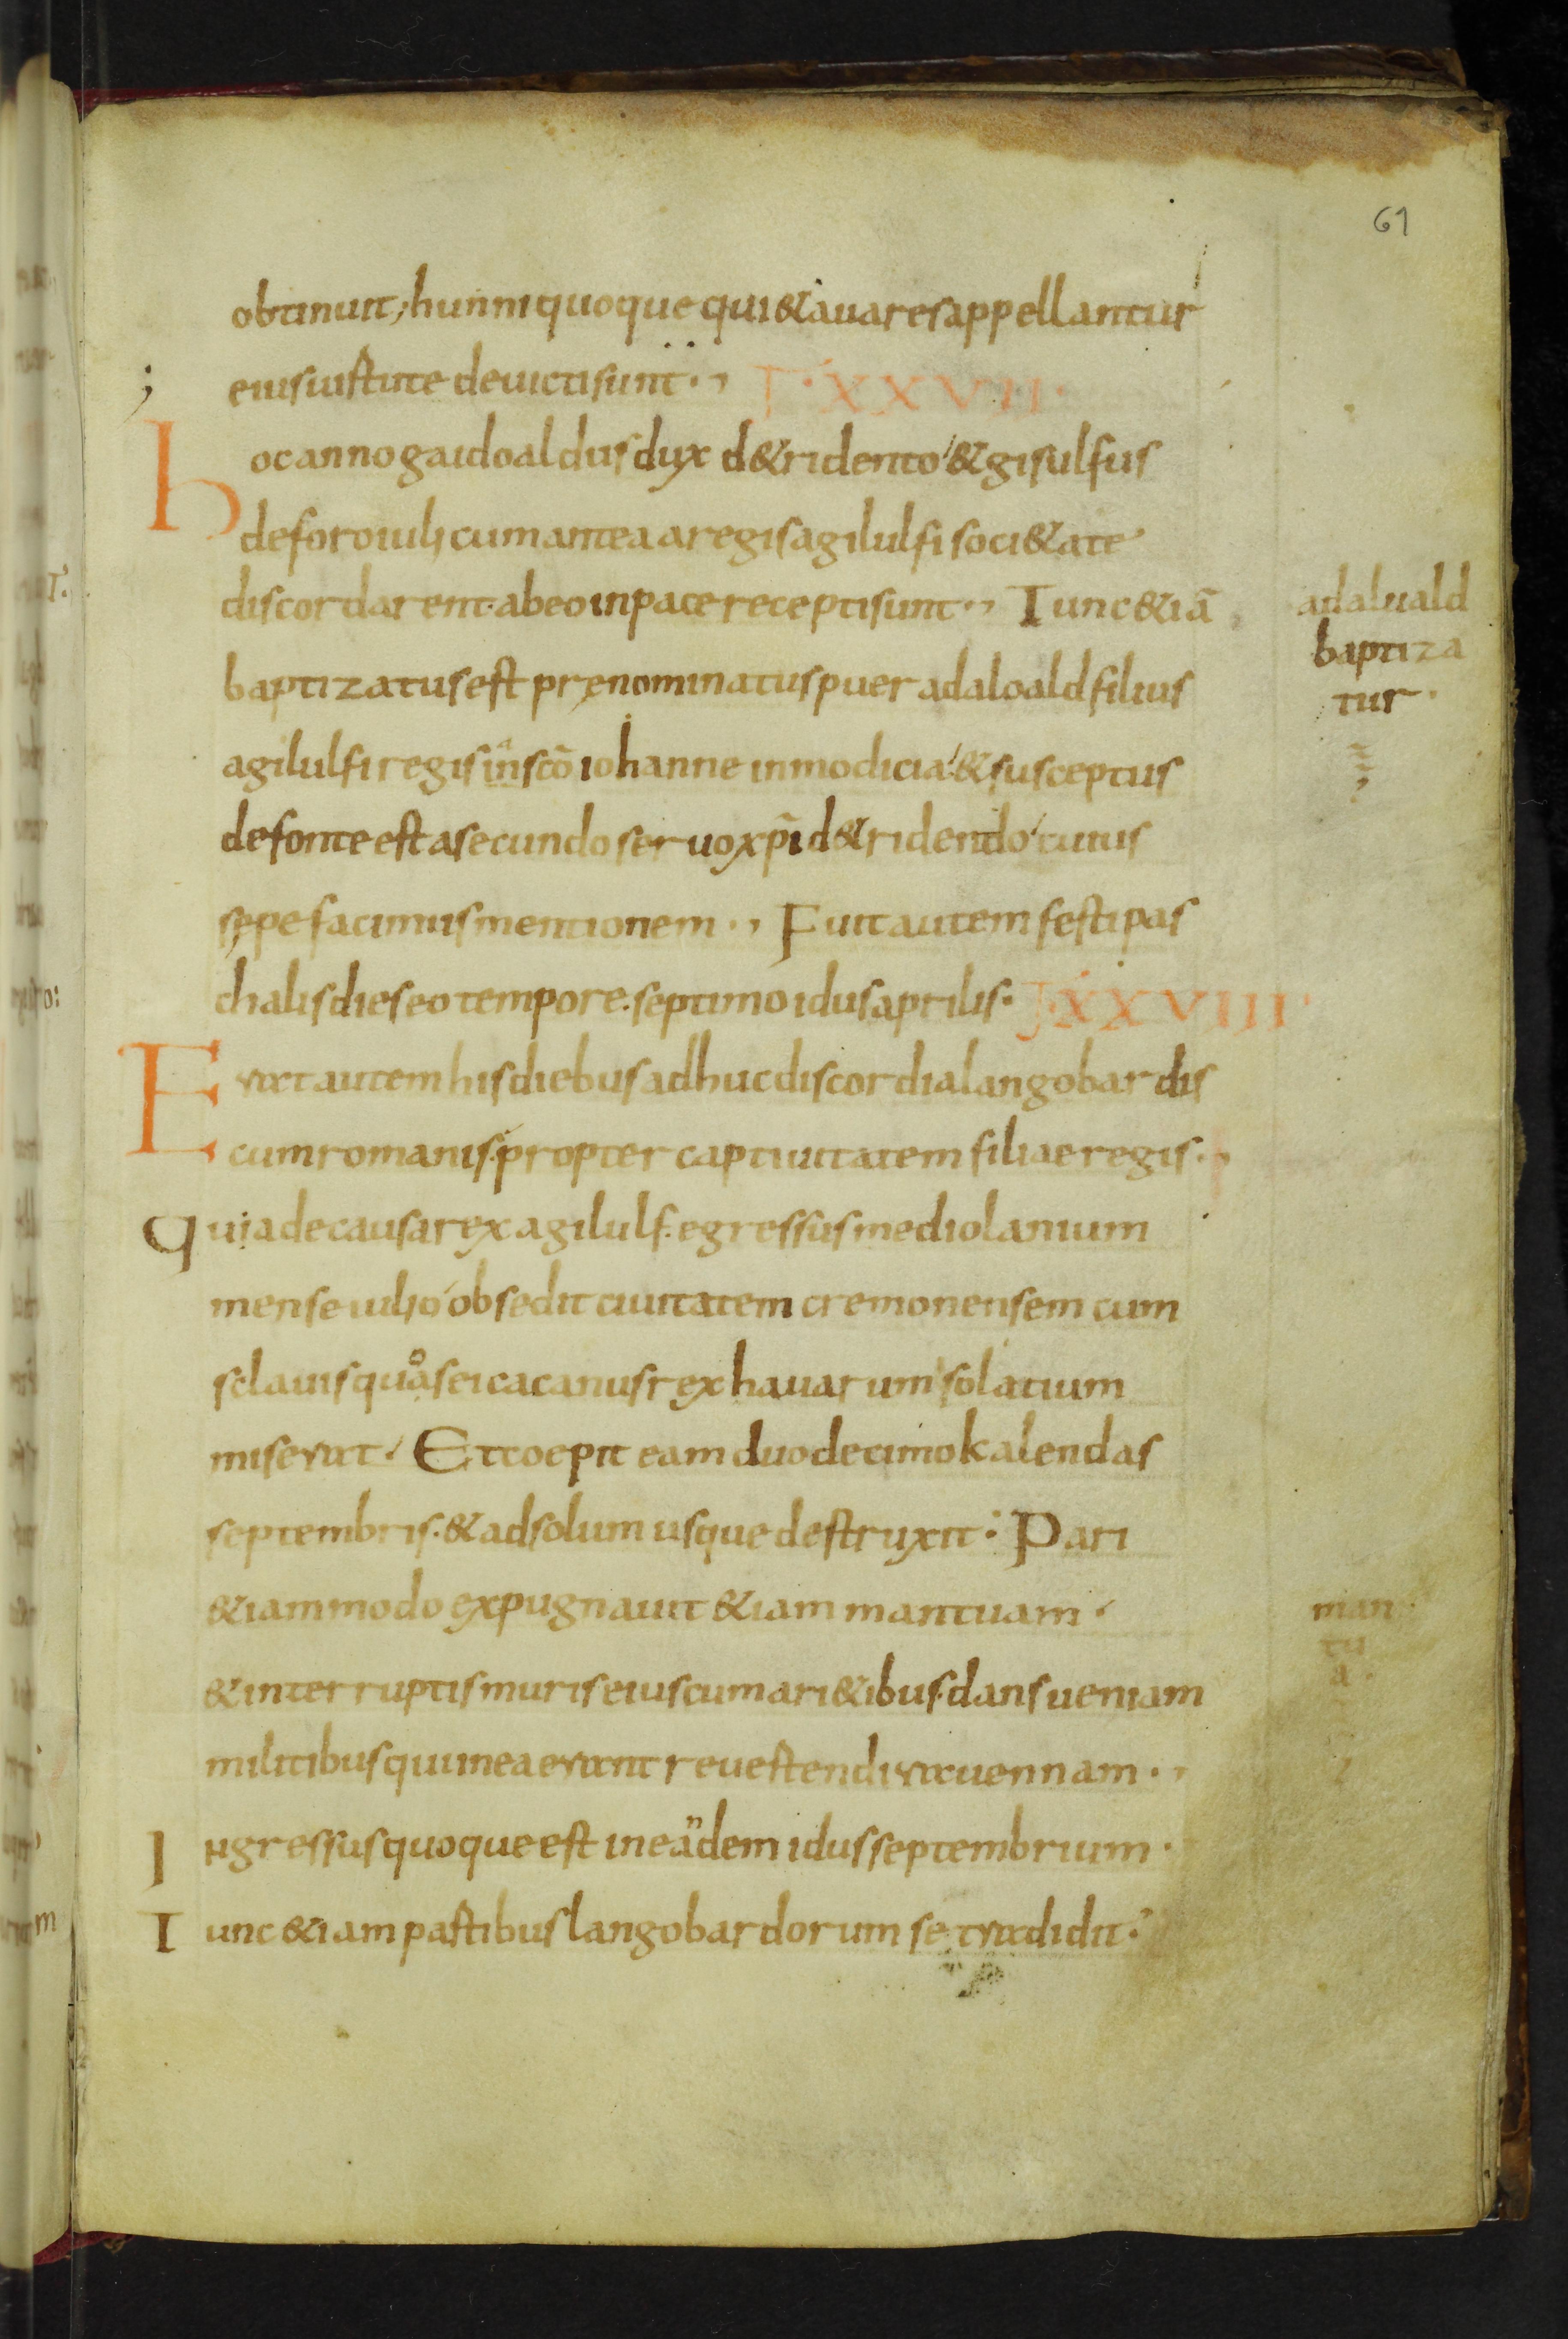 61
obtinuit; hunni quoque qui & auares appellantur
eius uirtute deuicti sunt. I. XXVII.
hoc anno gaidoaldus dux d&ridento & gisulfus
de foroiulii cum antea a regis agilulfi soci&ate
discordarent. ab eo in pace recepti sunt. Tunc &iā
baptizatus est prenominatus puer adaloald filius
agilulfi regis in scō iohanne in modicia. & susceptus
de fonte est a secundo seruo xp̄i d&ridendo cuius
sepe facimus mentionem. Fuit autem festi pas
chalis dies eo tempore. septimo idus aprilis. XXVIII
Erat autem his diebus adhuc discordia langobardis
cum romanis. propter captiuitatem filiae regis.
Qui a de causa rex agilulf. egressus mediolanium
mense iulio obsedit ciuitatem cremonensem cum
sclauis quos ei cacanus rex hauarum solatium
miserat. Et coepit eam duodecimo kalendas
septembris. & ad solum usque destruxit. Pari
&iam modo expugnauit &iam mantuam.
& interruptis muris eius cum ari&ibus. dans ueniam
militibus qui in ea erant reuertendi rauennam.
Ingressus quoque est in eandem idus septembrium.
Tunc &iam partibus langobardorum se tradidit.
adaluald
baptiza
tur.
man
tu
a.